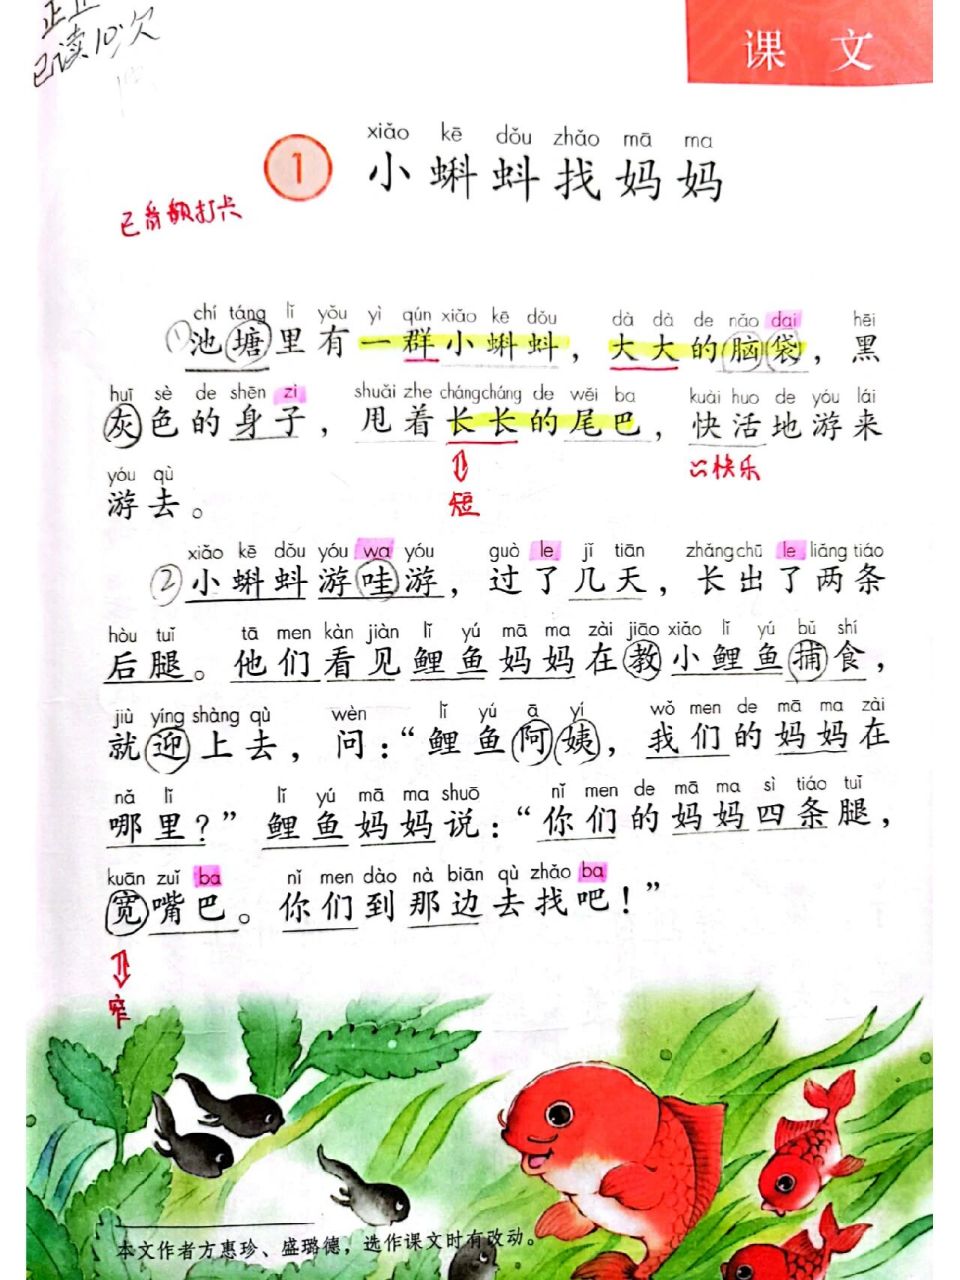 已读10次
课 文
xiǎo kē dǒu zhǎo mā ma
1 小蝌蚪找妈妈
已音频打卡
chí táng lǐ yǒu yì qún xiǎo kē dǒu dà dà de nǎo dai hēi
①池塘里有一群小蝌蚪，大大的脑袋，黑
huī sè de shēn zi shuǎi zhe cháng cháng de wěi ba kuài huo de yóu lái
灰色的身子，甩着长长的尾巴，快活地游来
短
快乐
yóu qù
游去。
xiǎo kē dǒu yóu wa yóu guò le jǐ tiān zhǎng chū le liǎng tiáo
②小蝌蚪游哇游，过了几天，长出了两条
hòu tuǐ tā men kàn jiàn lǐ yú mā ma zài jiāo xiǎo lǐ yú bǔ shí
后腿。他们看见鲤鱼妈妈在教小鲤鱼捕食，
jiù yíng shàng qù wèn lǐ yú ā yí wǒ men de mā ma zài
就迎上去，问：“鲤鱼阿姨，我们的妈妈在
nǎ lǐ lǐ yú mā ma shuō nǐ men de mā ma sì tiáo tuǐ
哪里？”鲤鱼妈妈说：“你们的妈妈四条腿，
kuān zuǐ ba nǐ men dào nà biān qù zhǎo ba
宽嘴巴。你们到那边去找吧！”
窄
本文作者方惠珍、盛璐德，选作课文时有改动。